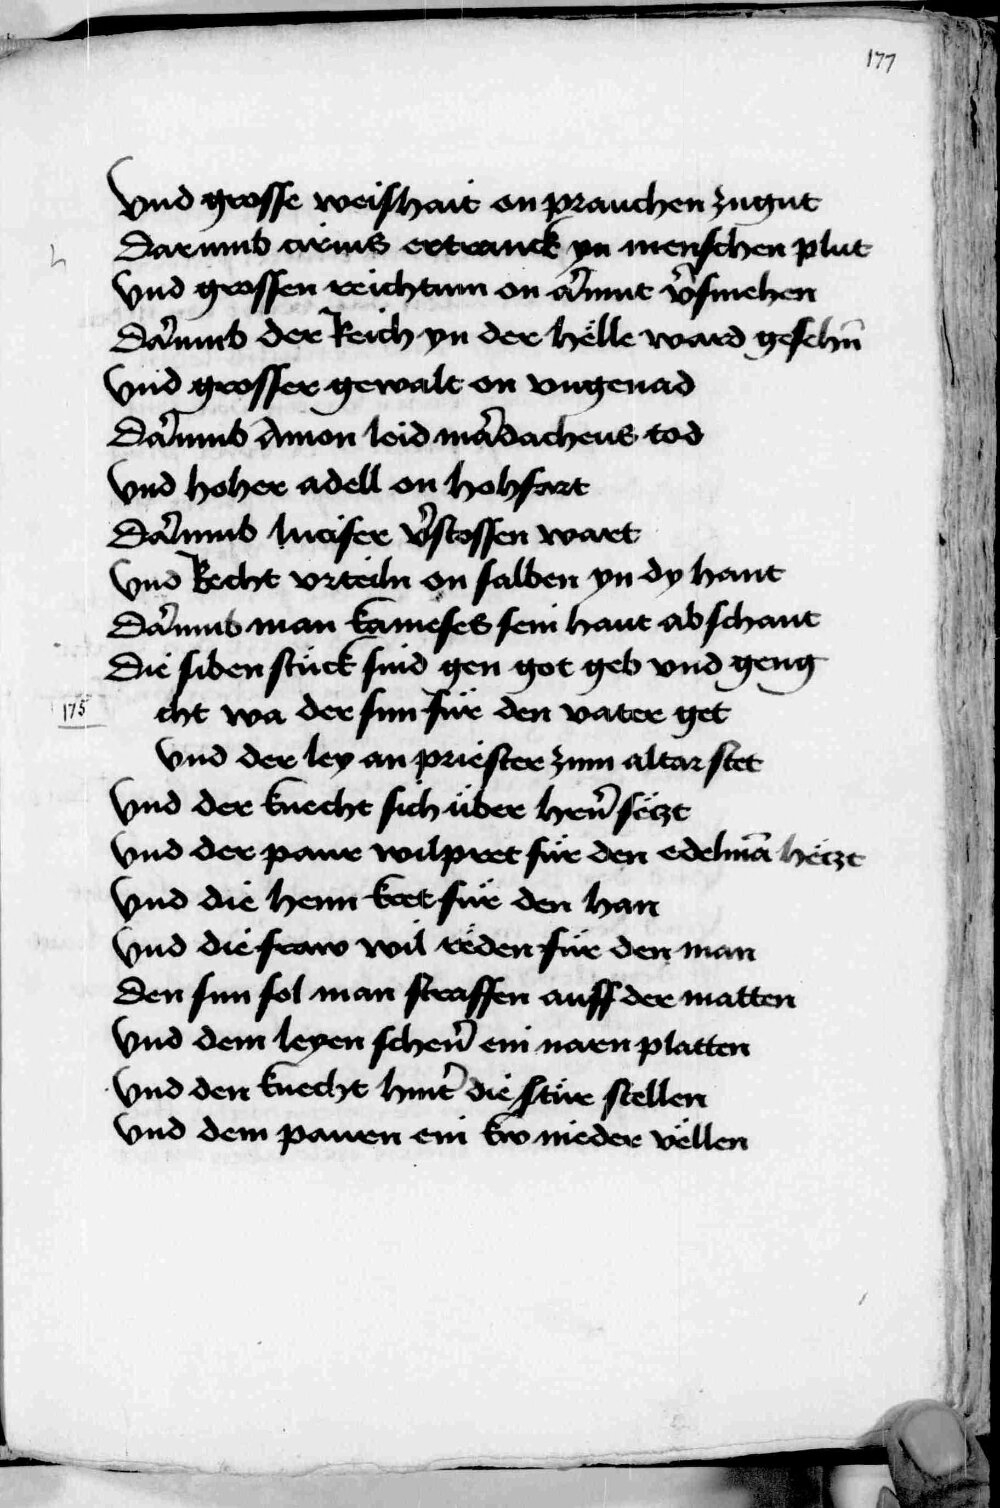 177
Vnd grosse weishait on prauchen zu gut
Darumb cirius ertranck yn menschen plut
Vnd grossen reichtum on armut v̕smehen
Da᷑umb der Reich yn der hëlle ward gesehn̄
Vnd grosser gewalt on vngenad
Da᷑umb Amon leid ma᷑dacheus tod
Vnd hoher adell on hohfart
Da᷑umb lucifer v̕stossen wart
Vnd Recht vrteiln on salben yn dy hant
Da᷑umb man kameses sein haut ab schant
Die siben stück sind gen got geb vnd geng
175
cht wa der sun für den vater get
Vnd der ley an priester zum altar stet
Vnd der knecht sich über hern̄ sëtzt
Vnd der paur wilpret für den edelmā hëtzt
Vnd die henn kret für den han
Vnd die fraw wil rëden für den man
Den sun sol man straffen auff der matten
Vnd dem leyen schern̄ ein naren platten
Vnd den knecht hint̕ die stür stellen
Vnd dem pauren ein kw nieder vëllen